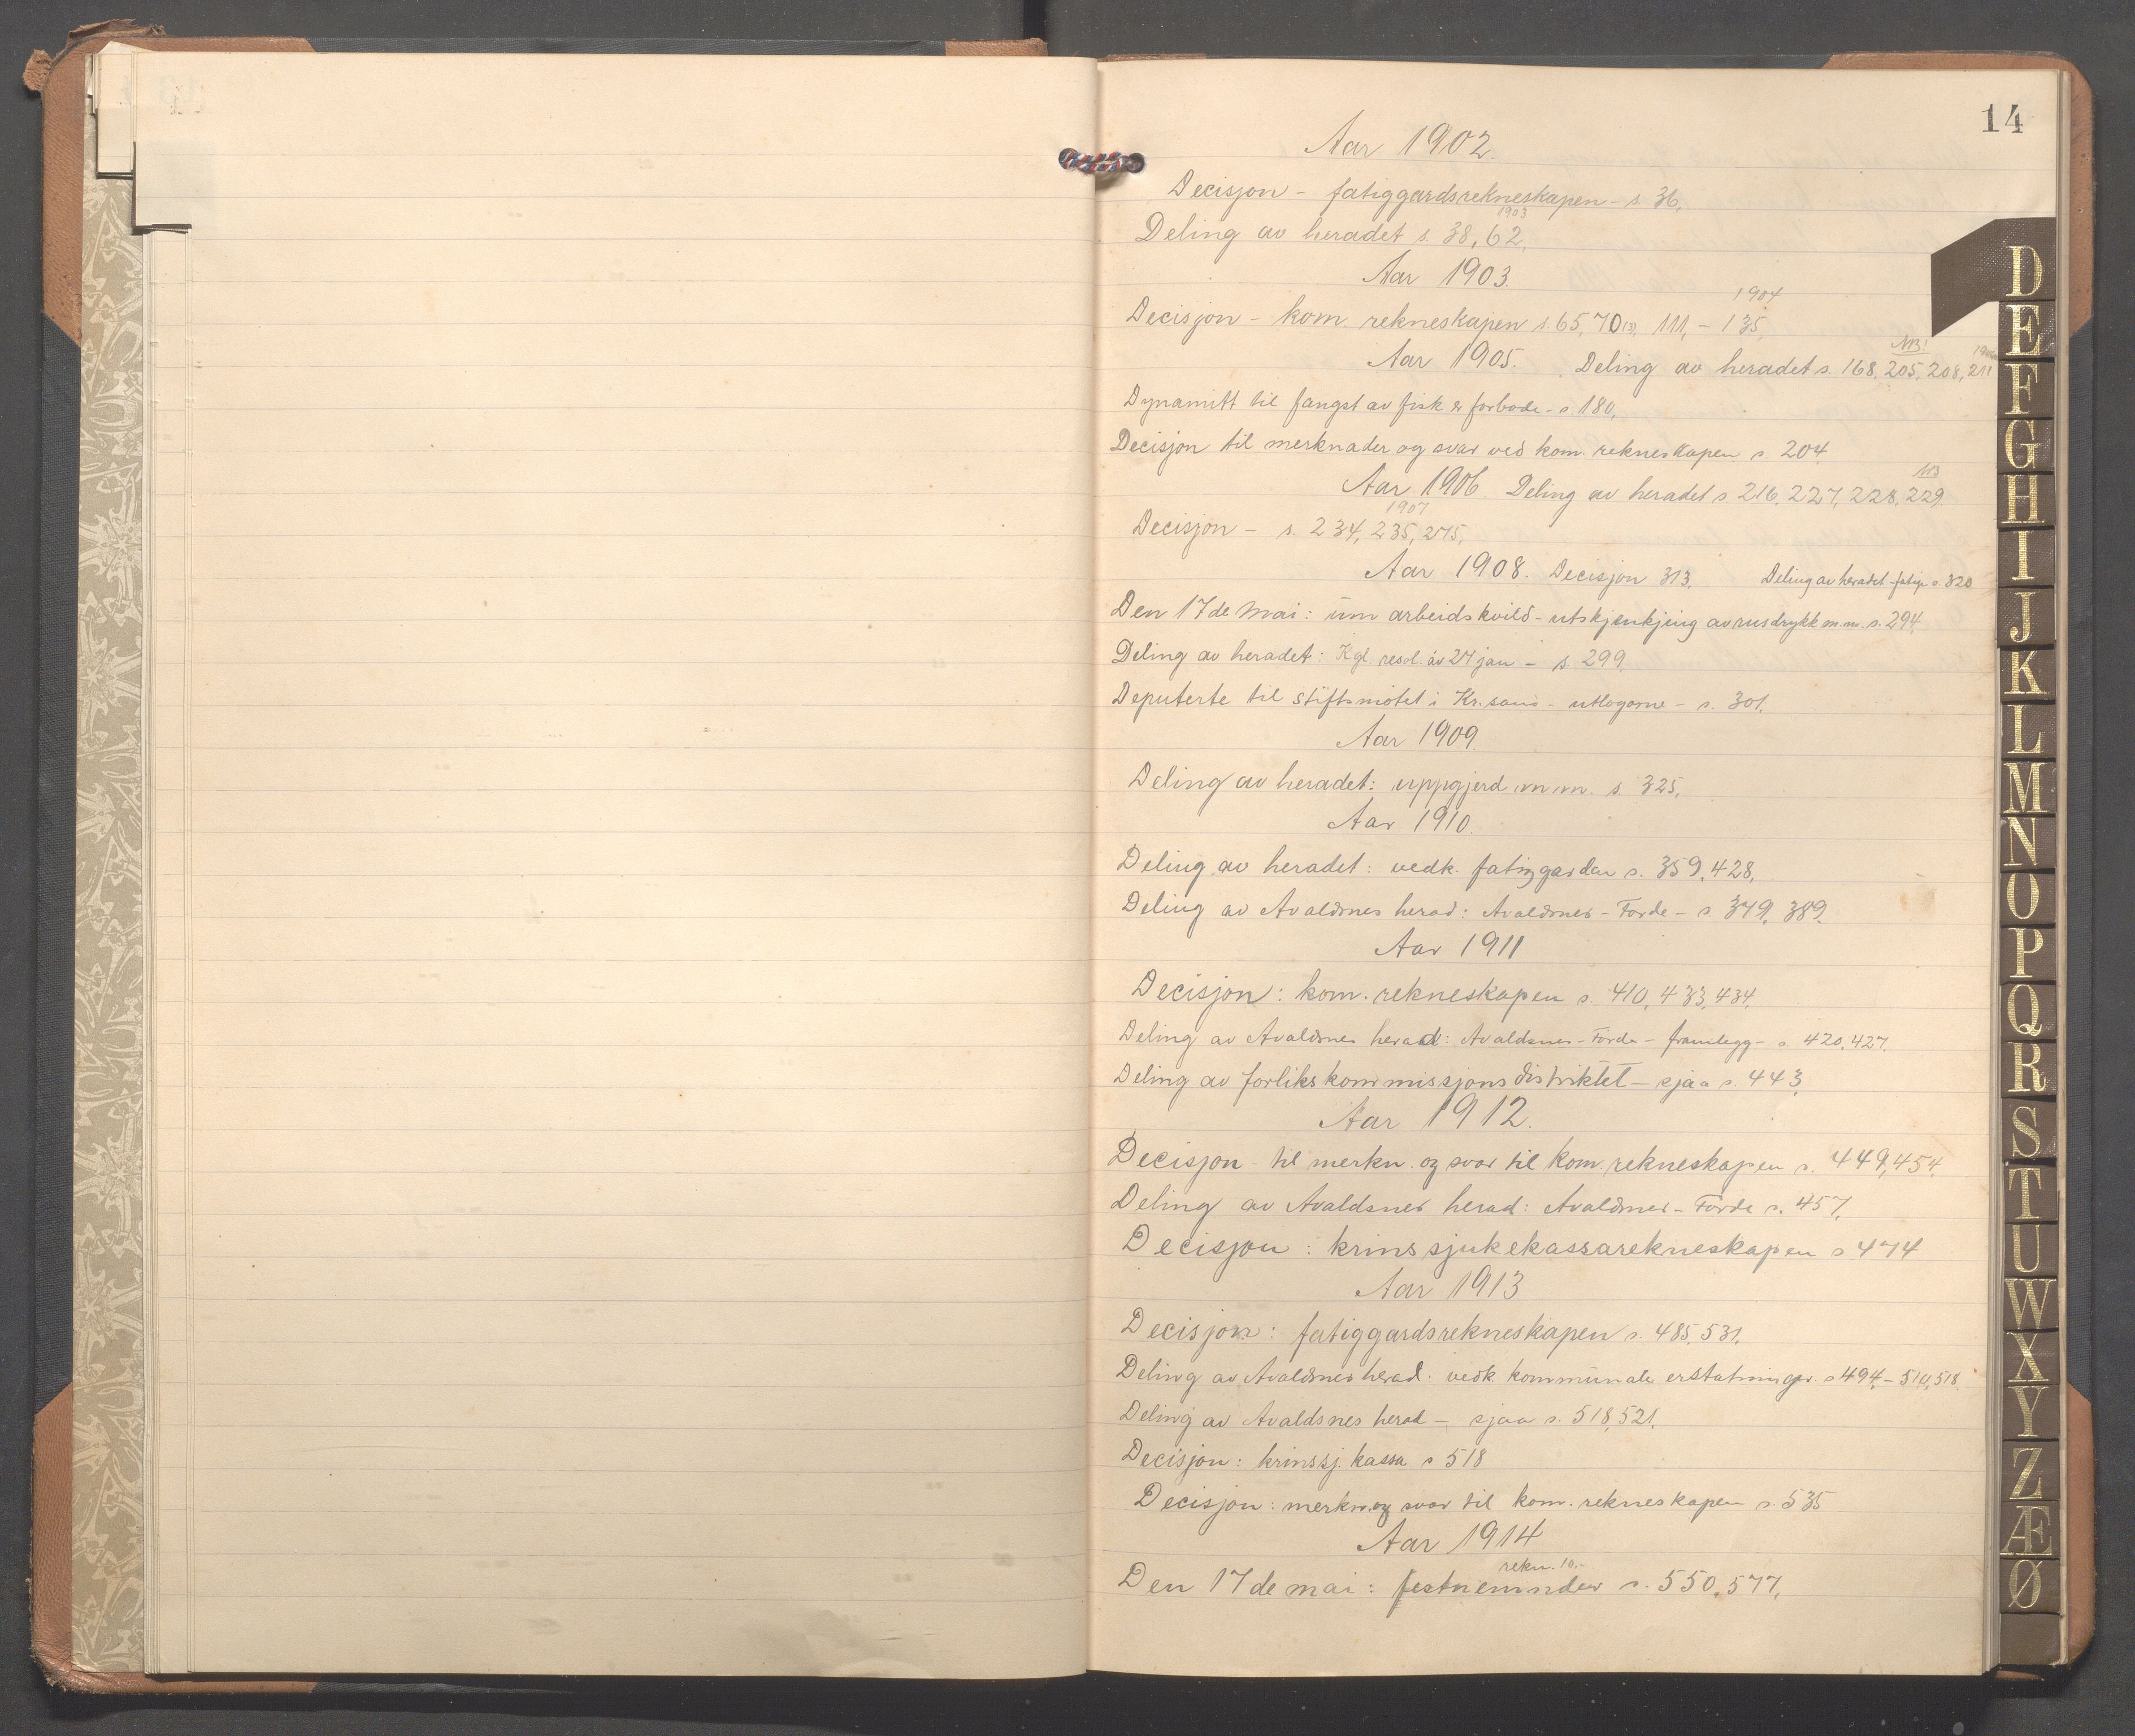 14
Aar 1902.
Decisjon - fatiggardsrekneskapen - s. 36.
1903
Deling av heradet s. 38, 62.
Aar 1903.
1904
Decisjon - kom. rekneskapen s. 65, 70 (3), 111, - 135,
Aar 1905. Deling av heradet s. 168, 205, 208, 211
NB!
Dynamitt til fangst av fisk er forbode - s. 180,
Decisjon til merknader og svar ved kom. rekneskapen s. 204
NB
Aar 1906. Deling av heradet s 216, 227, 228, 229
1907
Decisjon - s. 234, 235, 275,
Aar 1908. Decisjon 313. Deling av heradet - s. 320
Den 17de Mai: um arbeidskvild - utskjenkjing av rusdrykk m.m. s. 294.
Deling av heradet: Kgl. resol. av 27 jan - s. 299.
Deputerte til stiftsmøtet i Kr.sand - utlogorne - s. 301.
Aar 1909.
Deling av heradet: uppgjerd m.m. s. 325.
Aar 1910.
Deling av heradet: vedk. fatiggarden s. 359, 428.
Deling av Avaldsnes herad: Avaldsnes - Førde - s 379, 389.
Aar 1911
Decisjon: kom. rekneskapen s. 410, 433, 434.
Deling av Avaldsnes herad: Avaldsnes - Førde - framlegg - s. 420, 427.
Deling av forlikskommissjonsdistriktet - sjaa s. 443.
Aar 1912.
Decisjon - til merkn. og svar til kom. rekneskapen s. 449, 454.
Deling av Avaldsnes herad: Avaldsnes - Førde s. 457.
Decisjon: krinssjukekassarekneskapen s 474
Aar 1913
Decisjon: fatiggardsrekneskapen s. 485, 531.
Deling av Avaldsnes herad: vedk. kommunale erstatninger s 494 - 510, 518.
Deling av Avaldsnes herad - sjaa s. 518, 521.
Decisjon: krinssj. kassa s 518
Decisjon: merkn. og svar til kom. rekneskapen s. 535
Aar 1914
rekn. 10.-
Den 17de mai: festnemnder s. 550, 577.
D
E
F
G
H
I
J
K
L
M
N
O
P
Q
R
S
T
U
W
X
Y
Z
Æ
Ø